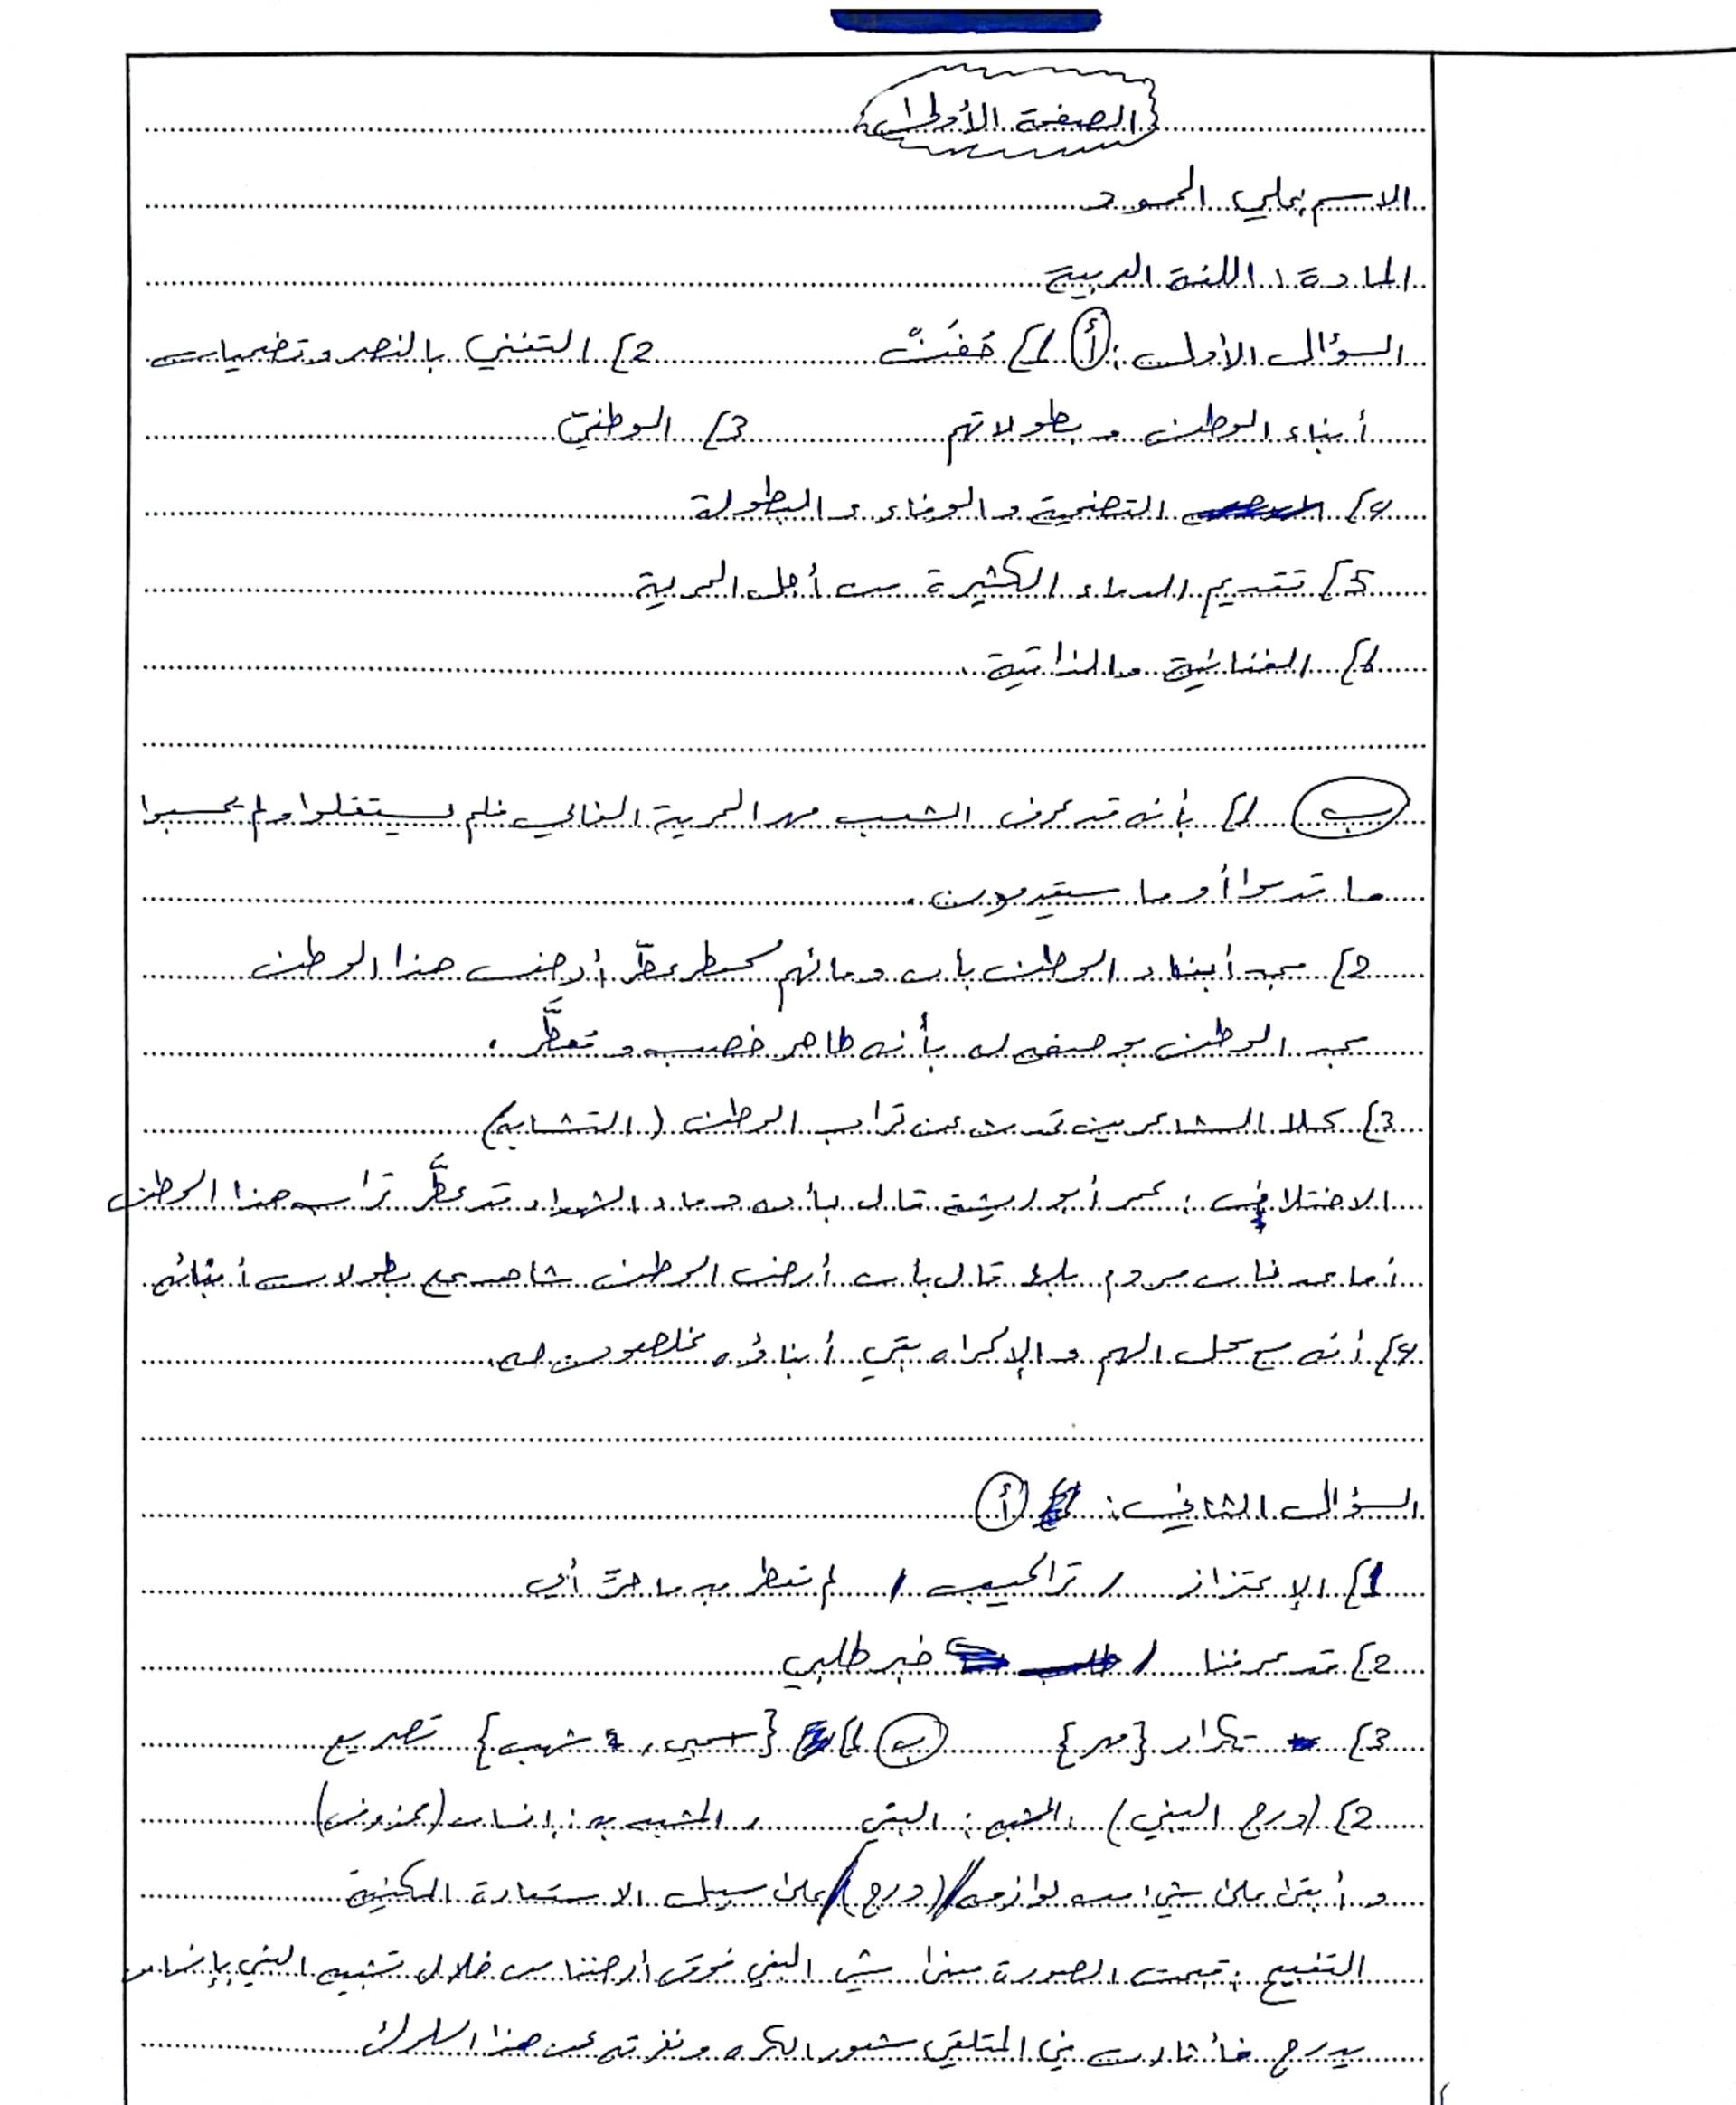 الصفحة الأولى
الاسم: علي الحمود
المادة: اللغة العربية
السؤال الأول: أ 1] خَفَتْ 2] التغني بالنصر وتضحيات
أبناء الوطن وبطولاتهم 3] الوطني
4] التضحية والوفاء والبطولة
5] تقديم الدماء الكثيرة من أجل الحرية
6] الغنائية والذاتية.
ب 1] بأنه قد عرف الشعب مهر الحرية الغالي فلم يستغلوا ولم يحسبوا
ما قدموا أو ما سيقدمون.
2] مجد أبناء الوطن بأن دمائهم كعطر عطّر أرض هذا الوطن
مجد الوطن بوصفه له بأنه طاهر خصب وتعطَّر.
3] كلا الشاعرين تحدث عن تراب الوطن (التشابه)
الاختلاف: عمر أبو ريشة قال بأن دماء الشهداء قد عطَّر تراب هذا الوطن
أما عدنان مردم بك قال بأن أرض الوطن شاهد على بطولات أبنائهم.
4] أنه مع كل الهم والإكراه بقي أبناؤه مخلصون له.
السؤال الثاني: أ
1] الإعتزاز / تراكيب / لم تعطر به ما حرّ أبي
2] قد عرفنا / خبر طلبي
3] تكرار {مهر} ب 1] {اسحبي، شهب} تصريع
2] (درج البغي) المشبه: البغي، المشبه به: إنسان (محذوف)
وأبقى على شيء من لوازمه (درج) على سبيل الاستعارة المكنية
التقبيح: قبحت الصورة معنى مشي البغي فوق أرضنا من خلال تشبيه البغي بإنسان
يدرج فأثارت في المتلقي شعور الكره ونفرته عن هذا السلوك